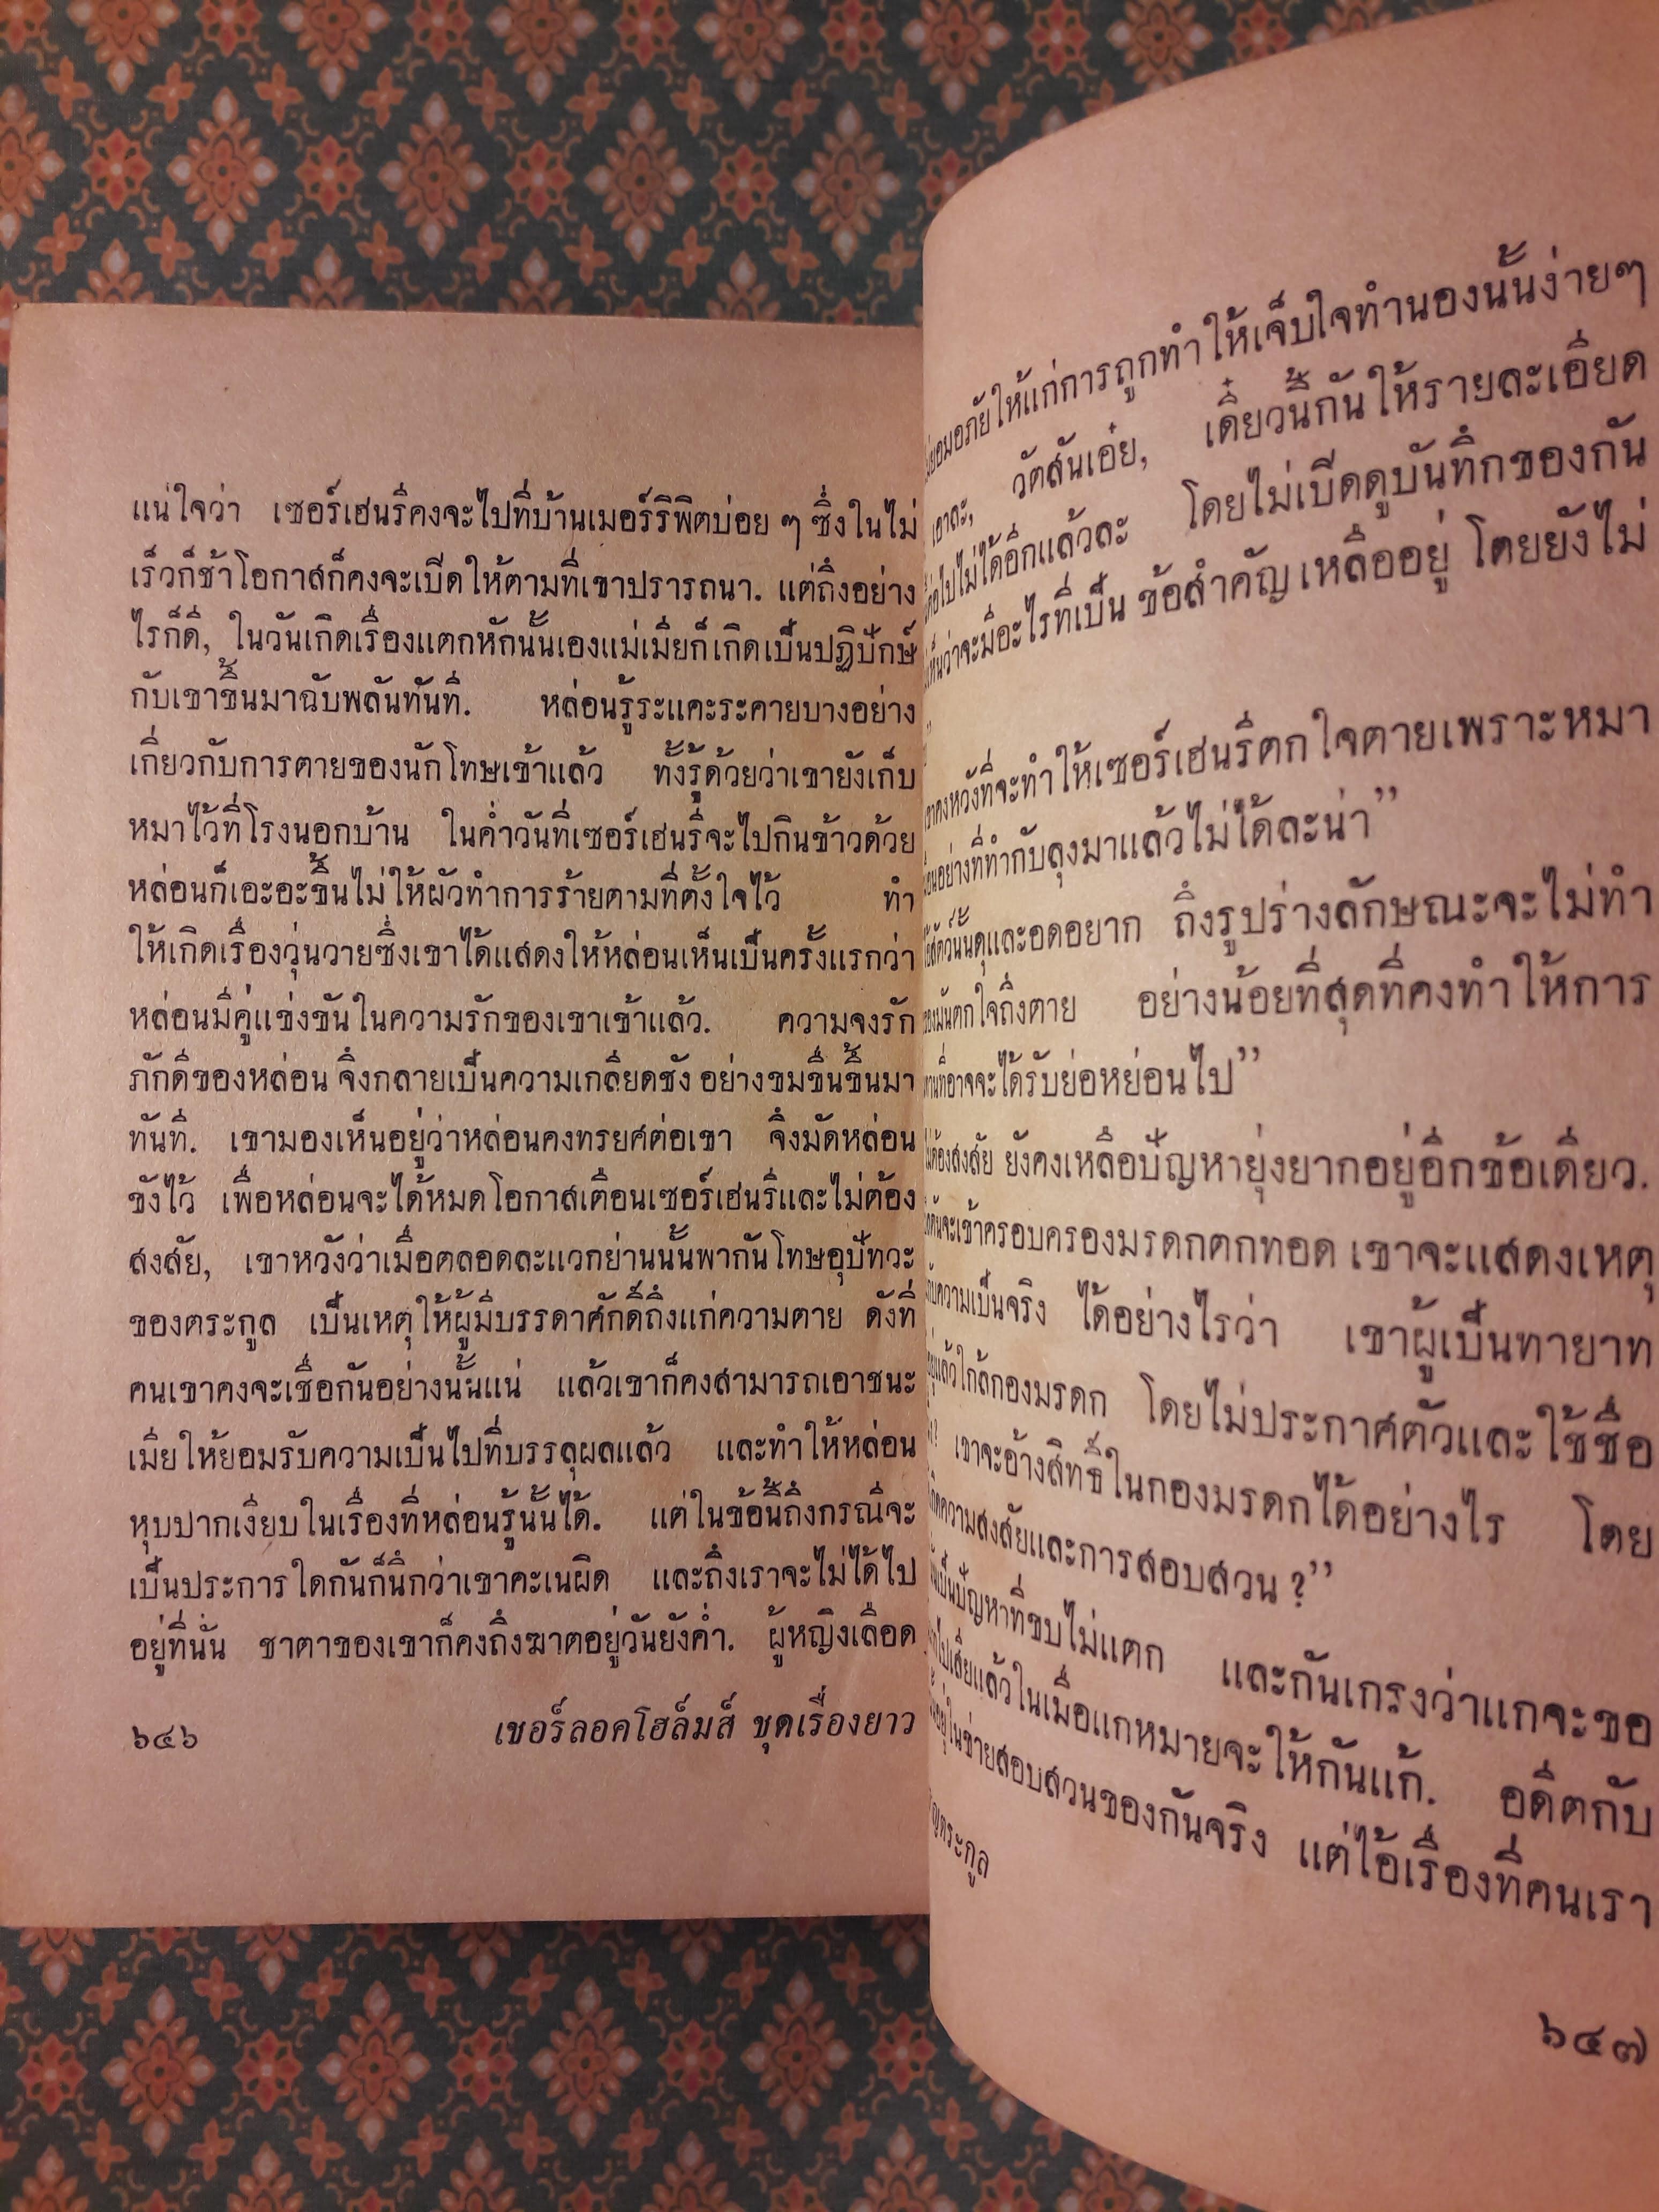 แน่ใจว่า เซอร์เฮนรี่คงจะไปที่บ้านเมอร์ริพิตบ่อย ๆ ซึ่งในไม่
เร็วก็ช้าโอกาสก็คงจะเบิดให้ตามที่เขาปรารถนา. แต่ถึงอย่าง
ไรก็ดี, ในวันเกิดเรื่องแตกหักนั้นเองแม่เมียก็เกิดเป็นปฏิปักษ์
กับเขาขึ้นมาฉับพลันทันที. หล่อนรู้ระแคะระคายบางอย่าง
เกี่ยวกับการตายของนักโทษเข้าแล้ว ทั้งรู้ด้วยว่าเขายังเก็บ
หมาไว้ที่โรงนอกบ้าน ในค่ำวันที่เซอร์เฮนรี่จะไปกินข้าวด้วย
หล่อนก็เอะอะขึ้นไม่ให้ผัวทำการร้ายตามที่ตั้งใจไว้ ทำ
ให้เกิดเรื่องวุ่นวายซึ่งเขาได้แสดงให้หล่อนเห็นเป็นครั้งแรกว่า
หล่อนมีคู่แข่งขันในความรักของเขาเข้าแล้ว. ความจงรัก
ภักดีของหล่อน จึงกลายเป็นความเกลียดชัง อย่างขมขื่นขึ้นมา
ทันที. เขามองเห็นอยู่ว่าหล่อนคงทรยศต่อเขา จึงมัดหล่อน
ขังไว้ เพื่อหล่อนจะได้หมดโอกาสเตือนเซอร์เฮนรี่และไม่ต้อง
สงสัย, เขาหวังว่าเมื่อตลอดละแวกย่านนั้นพากันโทษอุปัทวะ
ของตระกูล เป็นเหตุให้ผู้มีบรรดาศักดิ์ถึงแก่ความตาย ดังที่
คนเขาคงจะเชื่อกันอย่างนั้นแน่ แล้วเขาก็คงสามารถเอาชนะ
เมียให้ยอมรับความเป็นไปที่บรรลุผลแล้ว และทำให้หล่อน
หุบปากเงียบในเรื่องที่หล่อนรู้นั้นได้. แต่ในข้อนี้ถึงกรณีจะ
เป็นประการใดกันก็นึกว่าเขาคะเนผิด และถึงเราจะไม่ได้ไป
อยู่ที่นั่น ชาตาของเขาก็คงถึงฆาตอยู่วันยังค่ำ. ผู้หญิงเลือด
๖๔๖ เชอร์ลอคโฮล์มส์ ชุดเรื่องยาว
ยอมอภัยให้แก่การถูกทำให้เจ็บใจทำนองนั้นง่ายๆ
เอาละ, วัตสันเอ๋ย, เดี๋ยวนี้กันให้รายละเอียด
ต่อไปไม่ได้อีกแล้วละ โดยไม่เบิดดูบันทึกของกัน
เห็นว่าจะมีอะไรที่เป็น ข้อสำคัญ เหลืออยู่ โดยยังไม่
เขาคงหวังที่จะทำให้เซอร์เฮนรี่ตกใจตายเพราะหมา
อย่างที่ทำกับลุงมาแล้วไม่ได้ละน่า”
สัตว์นั้นดุและอดอยาก ถึงรูปร่างลักษณะจะไม่ทำ
ของมันตกใจถึงตาย อย่างน้อยที่สุดที่คงทำให้การ
ที่อาจจะได้รับย่อหย่อนไป”
ไม่ต้องสงสัย ยังคงเหลือปัญหายุ่งยากอยู่อีกข้อเดียว.
จะเข้าครอบครองมรดกตกทอด เขาจะแสดงเหตุ
ความเป็นจริง ได้อย่างไรว่า เขาผู้เป็นทายาท
แล้วใกล้กองมรดก โดยไม่ประกาศตัวและใช้ชื่อ
เขาจะอ้างสิทธิ์ในกองมรดกได้อย่างไร โดย
ความสงสัยและการสอบสวน ?”
เป็นปัญหาที่ขบไม่แตก และกันเกรงว่าแกจะขอ
ไปเสียแล้วในเมื่อแกหมายจะให้กันแก้. อดีตกับ
อยู่ในข่ายสอบสวนของกันจริง แต่ไอ้เรื่องที่คนเรา
ตระกูล
๖๔๗